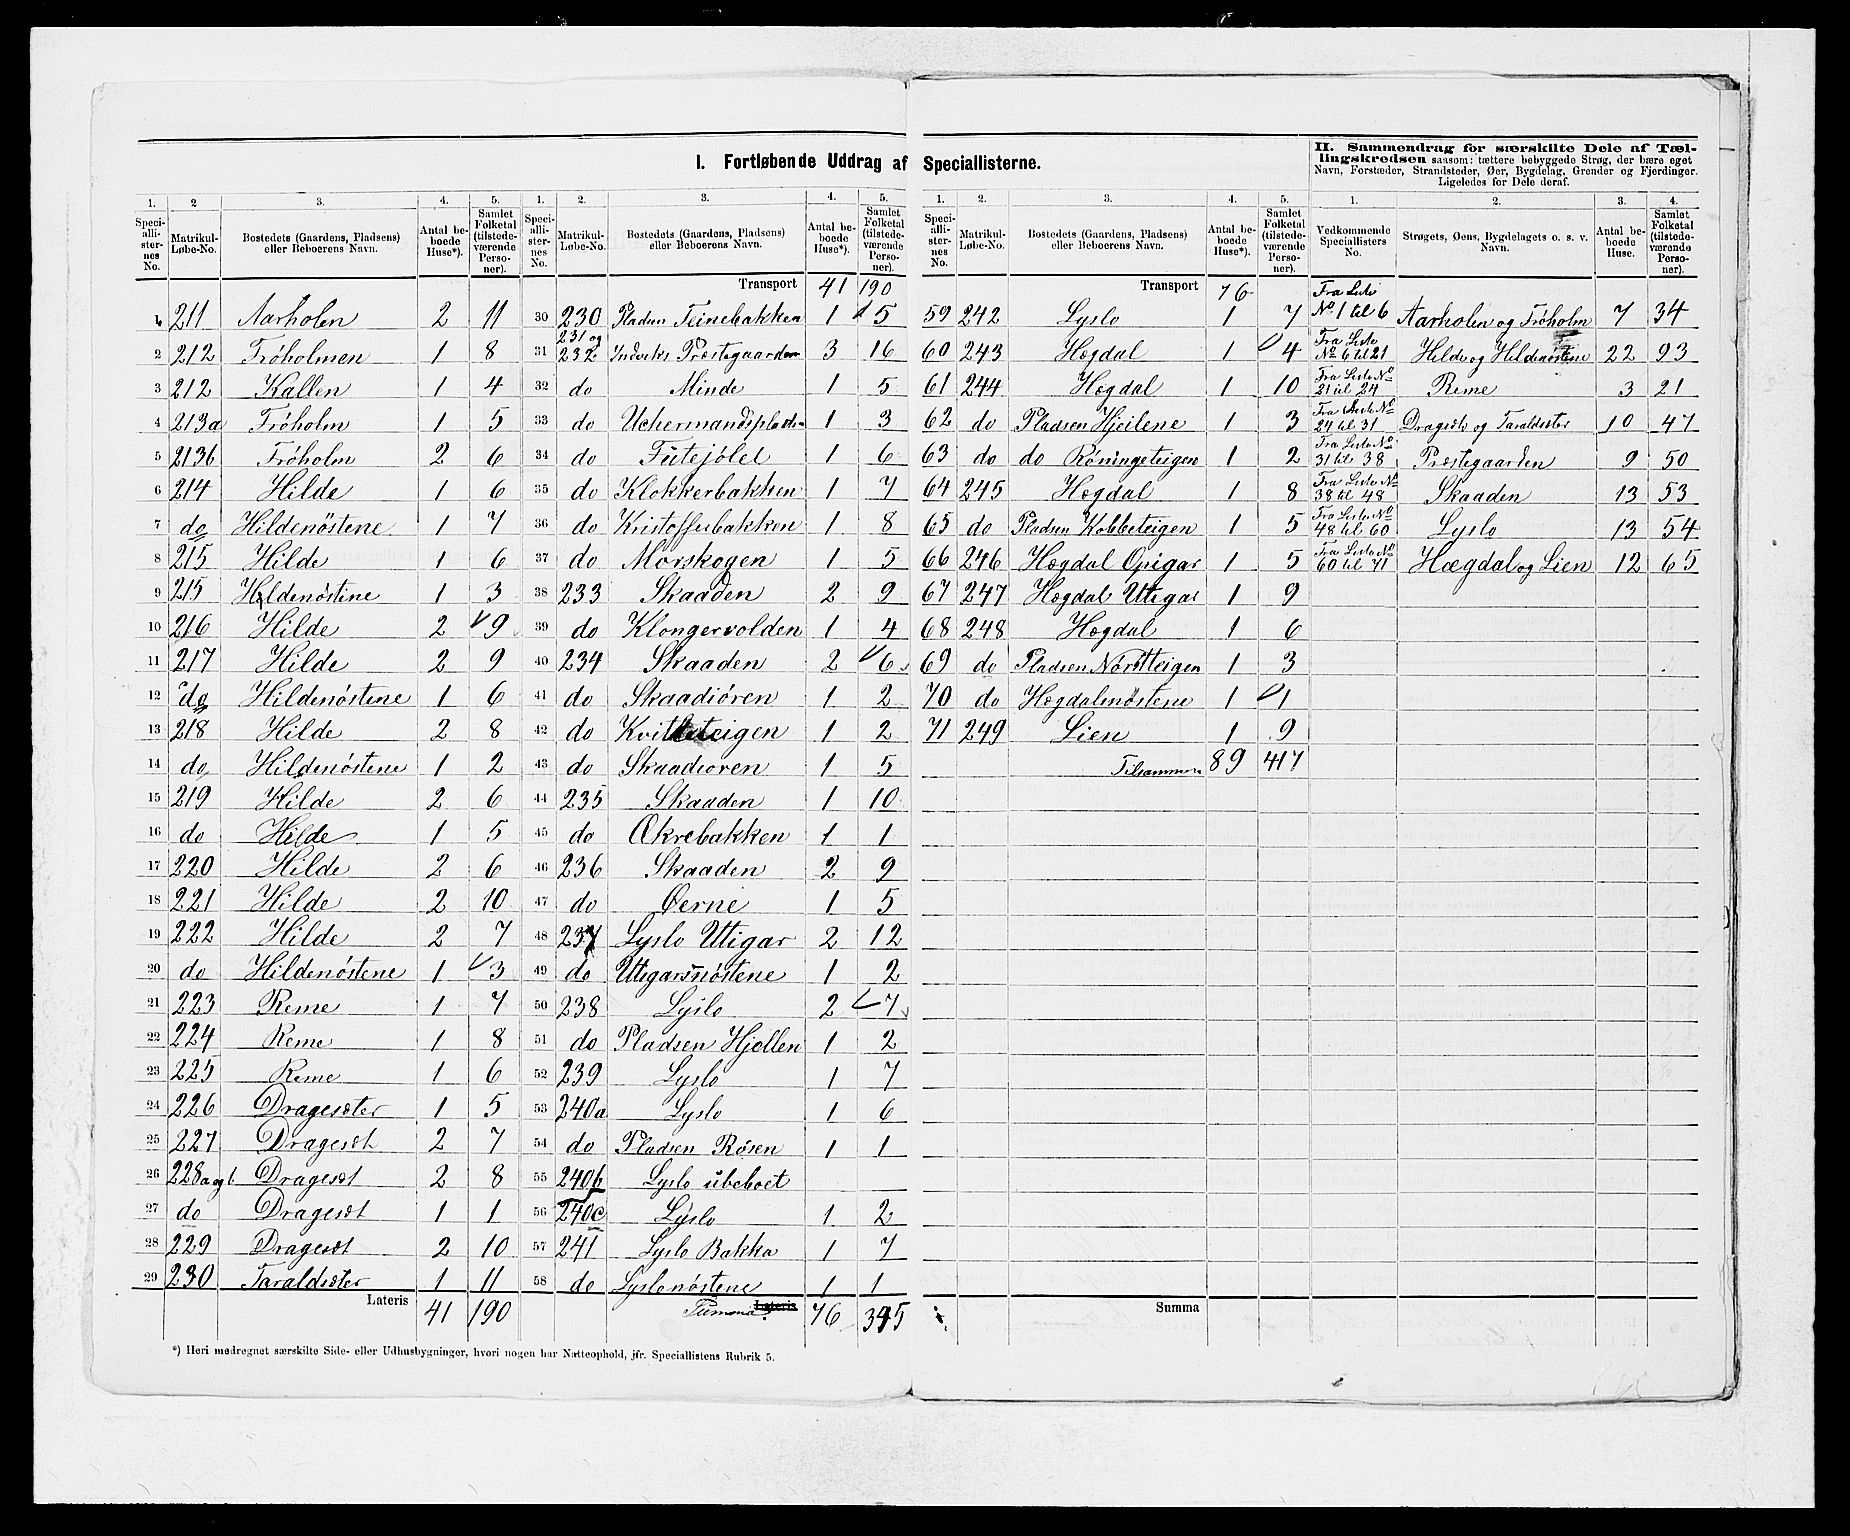 I. Fortløbende Uddrag af Speciallisterne.
II. Sammendrag for særskilte Dele af Tæl-
lingskredsen saasom: tættere bebyggede Strøg, der bære eget
Navn, Forstæder, Strandsteder, Øer, Bygdelag, Grender og Fjerdinger.
Ligeledes for Dele deraf.
1. 2 3. 4. 5.
Speci-alli-ster-nes No. Matrikul-Løbe-No. Bostedets (Gaardens, Pladsens) eller Beboerens Navn. Antal be-boede Huse*). Samlet Folketal (tilstede-værende Perso-ner).
1 211 Aarholen 2 11
2 212 Frøholmen 1 8
3 212 Kallen 1 4
4 213a Frøholm 1 5
5 213b Frøholm 2 6
6 214 Hilde 1 6
7 do Hildenöstene 1 7
8 215 Hilde 1 6
9 215 Hildenöstine 1 3
10 216 Hilde 2 9
11 217 Hilde 2 9
12 do Hildenöstene 1 6
13 218 Hilde 2 8
14 do Hildenöstene 1 2
15 219 Hilde 2 6
16 do Hilde 1 5
17 220 Hilde 2 6
18 221 Hilde 2 10
19 222 Hilde 2 7
20 do Hildenöstene 1 3
21 223 Reme 1 7
22 224 Reme 1 8
23 225 Reme 1 6
24 226 Dragesæter 1 5
25 227 Dragesæt 2 7
26 228a og b Dragesæt 2 8
27 do Dragesæt 1 1
28 229 Dragesæt 2 10
29 230 Taraldsæter 1 11
Lateris 41 190
1. 2. 3. 4. 5.
Speci-alli-ster-nes No. Matrikul-Løbe-No. Bostedets (Gaardens, Pladsens) eller Beboerens Navn. Antal be-boede Huse*). Samlet Folketal (tilstede-værende Perso-ner).
Transport 41 190
30 230 Pladsen Teinebakken 1 5
31 231 og 232 Indviks Præstegaarden 3 16
32 do Minde 1 5
33 do Uchermandsplads 1 3
34 do Futejölet 1 6
35 do Klokkerbakken 1 7
36 do Kristofferbakken 1 8
37 do Morskogen 1 5
38 233 Skaaden 2 9
39 do Klongervolden 1 4
40 234 Skaaden 2 6
41 do Skaadiören 1 2
42 do Kvitleteigen 1 2
43 do Skaadiören 1 5
44 235 Skaaden 1 10
45 do Økrebakken 1 1
46 236 Skaaden 2 9
47 do Øerne 1 5
48 237 Lyslo Utigar 2 12
49 do Utigarsnöstene 1 2
50 238 Lyslo 2 7
51 do Pladsen Hjellen 1 2
52 239 Lyslo 1 7
53 240a Lyslo 1 6
54 do Pladsen Rösen 1 1
55 240b Lyslo ubeboet
56 240c Lyslo 1 2
57 241 Lyslo Bakka 1 7
58 do Lyslonöstene 1 1
Summa Lateris 76 345
1. 2. 3. 4. 5.
Speci-alli-ster-nes No. Matrikul-Løbe-No. Bostedets (Gaardens, Pladsens) eller Beboerens Navn. Antal be-boede Huse*). Samlet Folketal (tilstede-værende Perso-ner).
Transport 76
59 242 Lyslo 1 7
60 243 Hægdal 1 4
61 244 Hægdal 1 10
62 do Pladsen Hjeilene 1 3
63 do do Röningeteigen 1 2
64 245 Hægdal 1 8
65 do Pladsen Kobbeteigen 1 5
66 246 Hægdal Opigar 1 5
67 247 Hægdal Utigar 1 9
68 248 Hægdal 1 6
69 do Pladsen Nörstteigen 1 3
70 do Hægdalnöstene 1 1
71 249 Lien 1 9
Tilsammen 89 417
Summa
1. 2. 3. 4.
Vedkommende Speciallisters No. Strøgets, Øens, Bygdelagets o. s. v. Navn. Antal be-boede Huse. Samlet Folketal (tilstede-værende Perso-ner).
Fra Liste No 1 til 6 Aarholen og Fröholm 7 34
Fra Liste No 6 til 21 Hilde og Hildenöstene 22 93
Fra Liste No 21 til 24 Reme 3 21
Fra Liste No 24 til 31 Dragesæt og Taraldsæter 10 47
Fra Liste No 31 til 38 Præstegaarden 9 50
Fra Liste No 38 til 48 Skaaden 13 53
Fra Liste No 48 til 60 Lyslo 13 54
Fra Liste No 60 til 71 Hægdal og Lien 12 65
*) Heri medregnet særskilte Side- eller Udhusbygninger, hvori nogen har Natteophold, jfr. Speciallistens Rubrik 5.